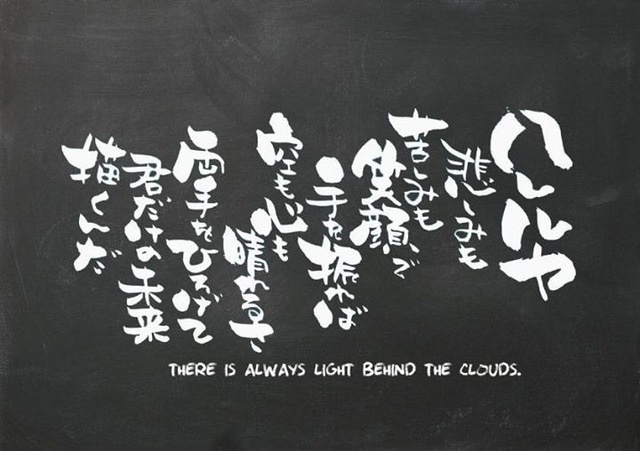 ハレルヤ
悲しみも
苦しみも
笑顔で
手を振れば
空も心も
晴れるさ
両手をひろげて
君だけの未来
描くんだ
THERE IS ALWAYS LIGHT BEHIND THE CLOUDS.